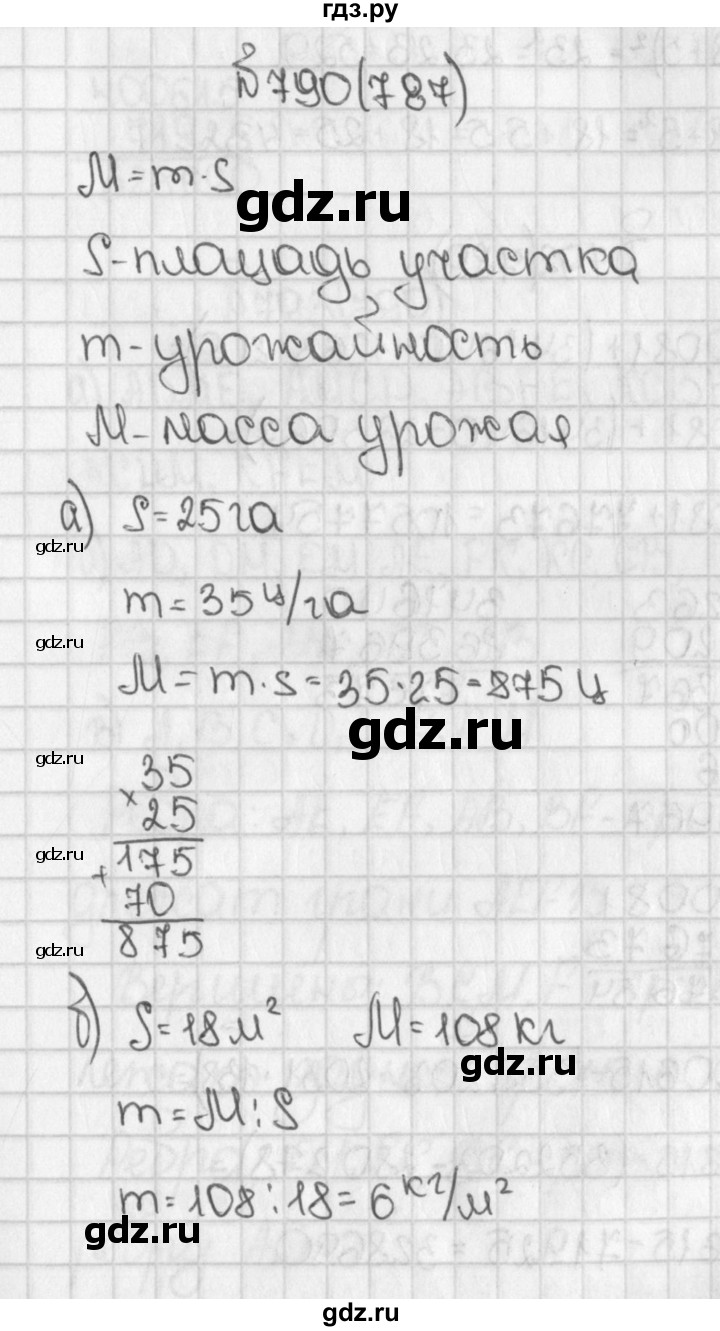 гдз.ру
№790(787)
M=m·S
gdz.ru
S-площадь участка
m-урожайность
M-масса урожая
а) S=25га
gdz.ru
m=35ц/га
gdz.ru
M=m·S=35·25=875ц
gdz.ru
gdz.ru
35
×
25
gdz.ru
175
+
70
gdz.ru
875
б) S=18м² M=108кг
gdz.ru
m=M:S
m=108:18=6кг/м²
gdz.ru
gdz.ru